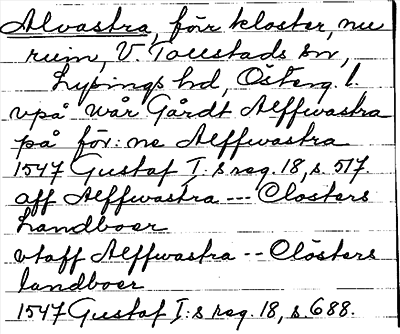 Alvastra, förr kloster, nu
ruin, V. Tollstads sn,
Lysings hd, Österg. l.
vpå wår Gårdt Alffwastra
på för: ne Alffwastra
1547 Gustaf I:s reg. 18, s. 517.
aff Alffwastra --- Closters
Landboer
vtaff Alffwastra -- Clösters
landboer
1547 Gustaf I:s reg. 18, s 688.